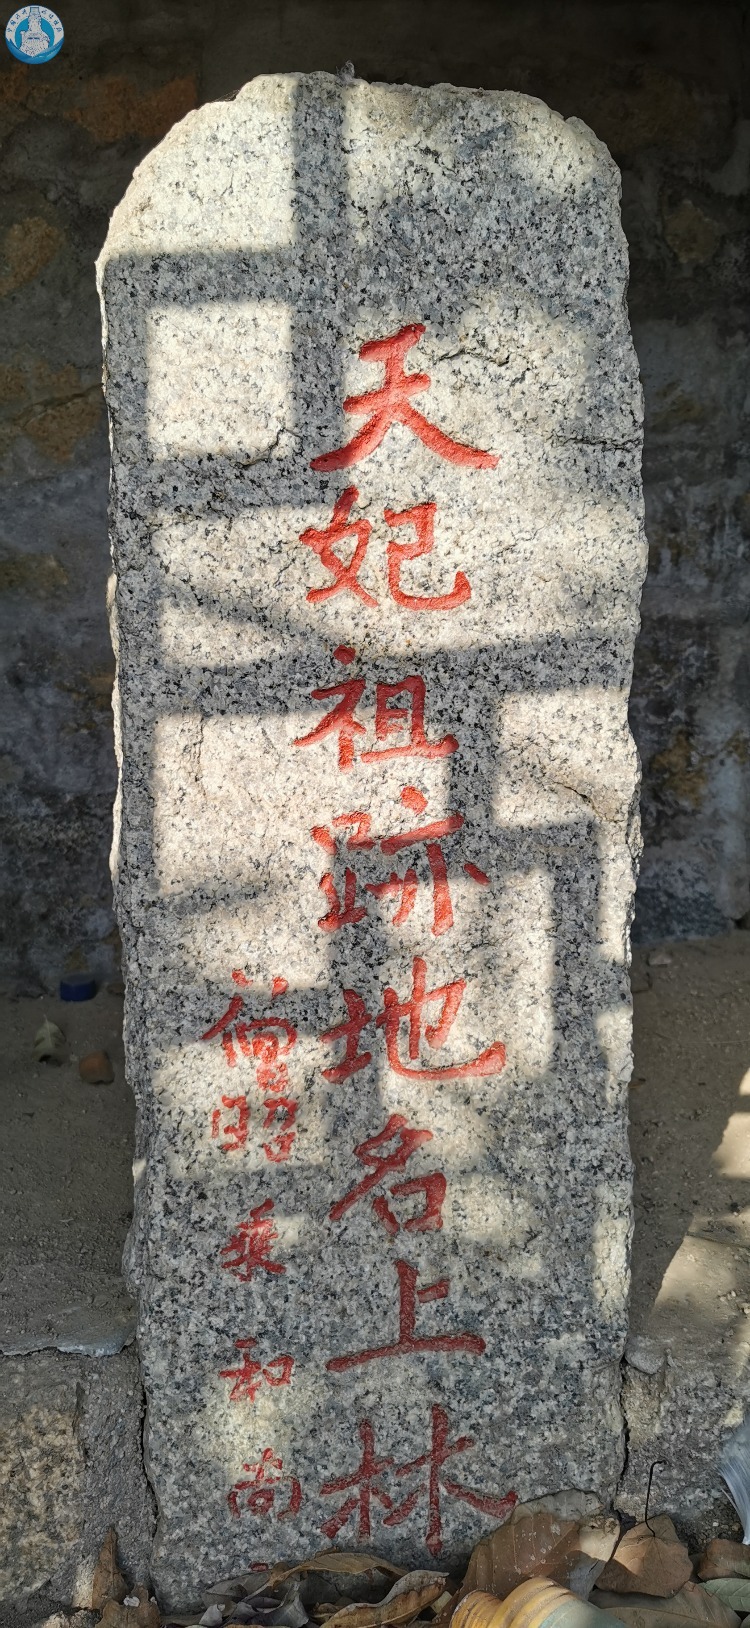 天妃祖跡地名上林
僧昭乘和尚